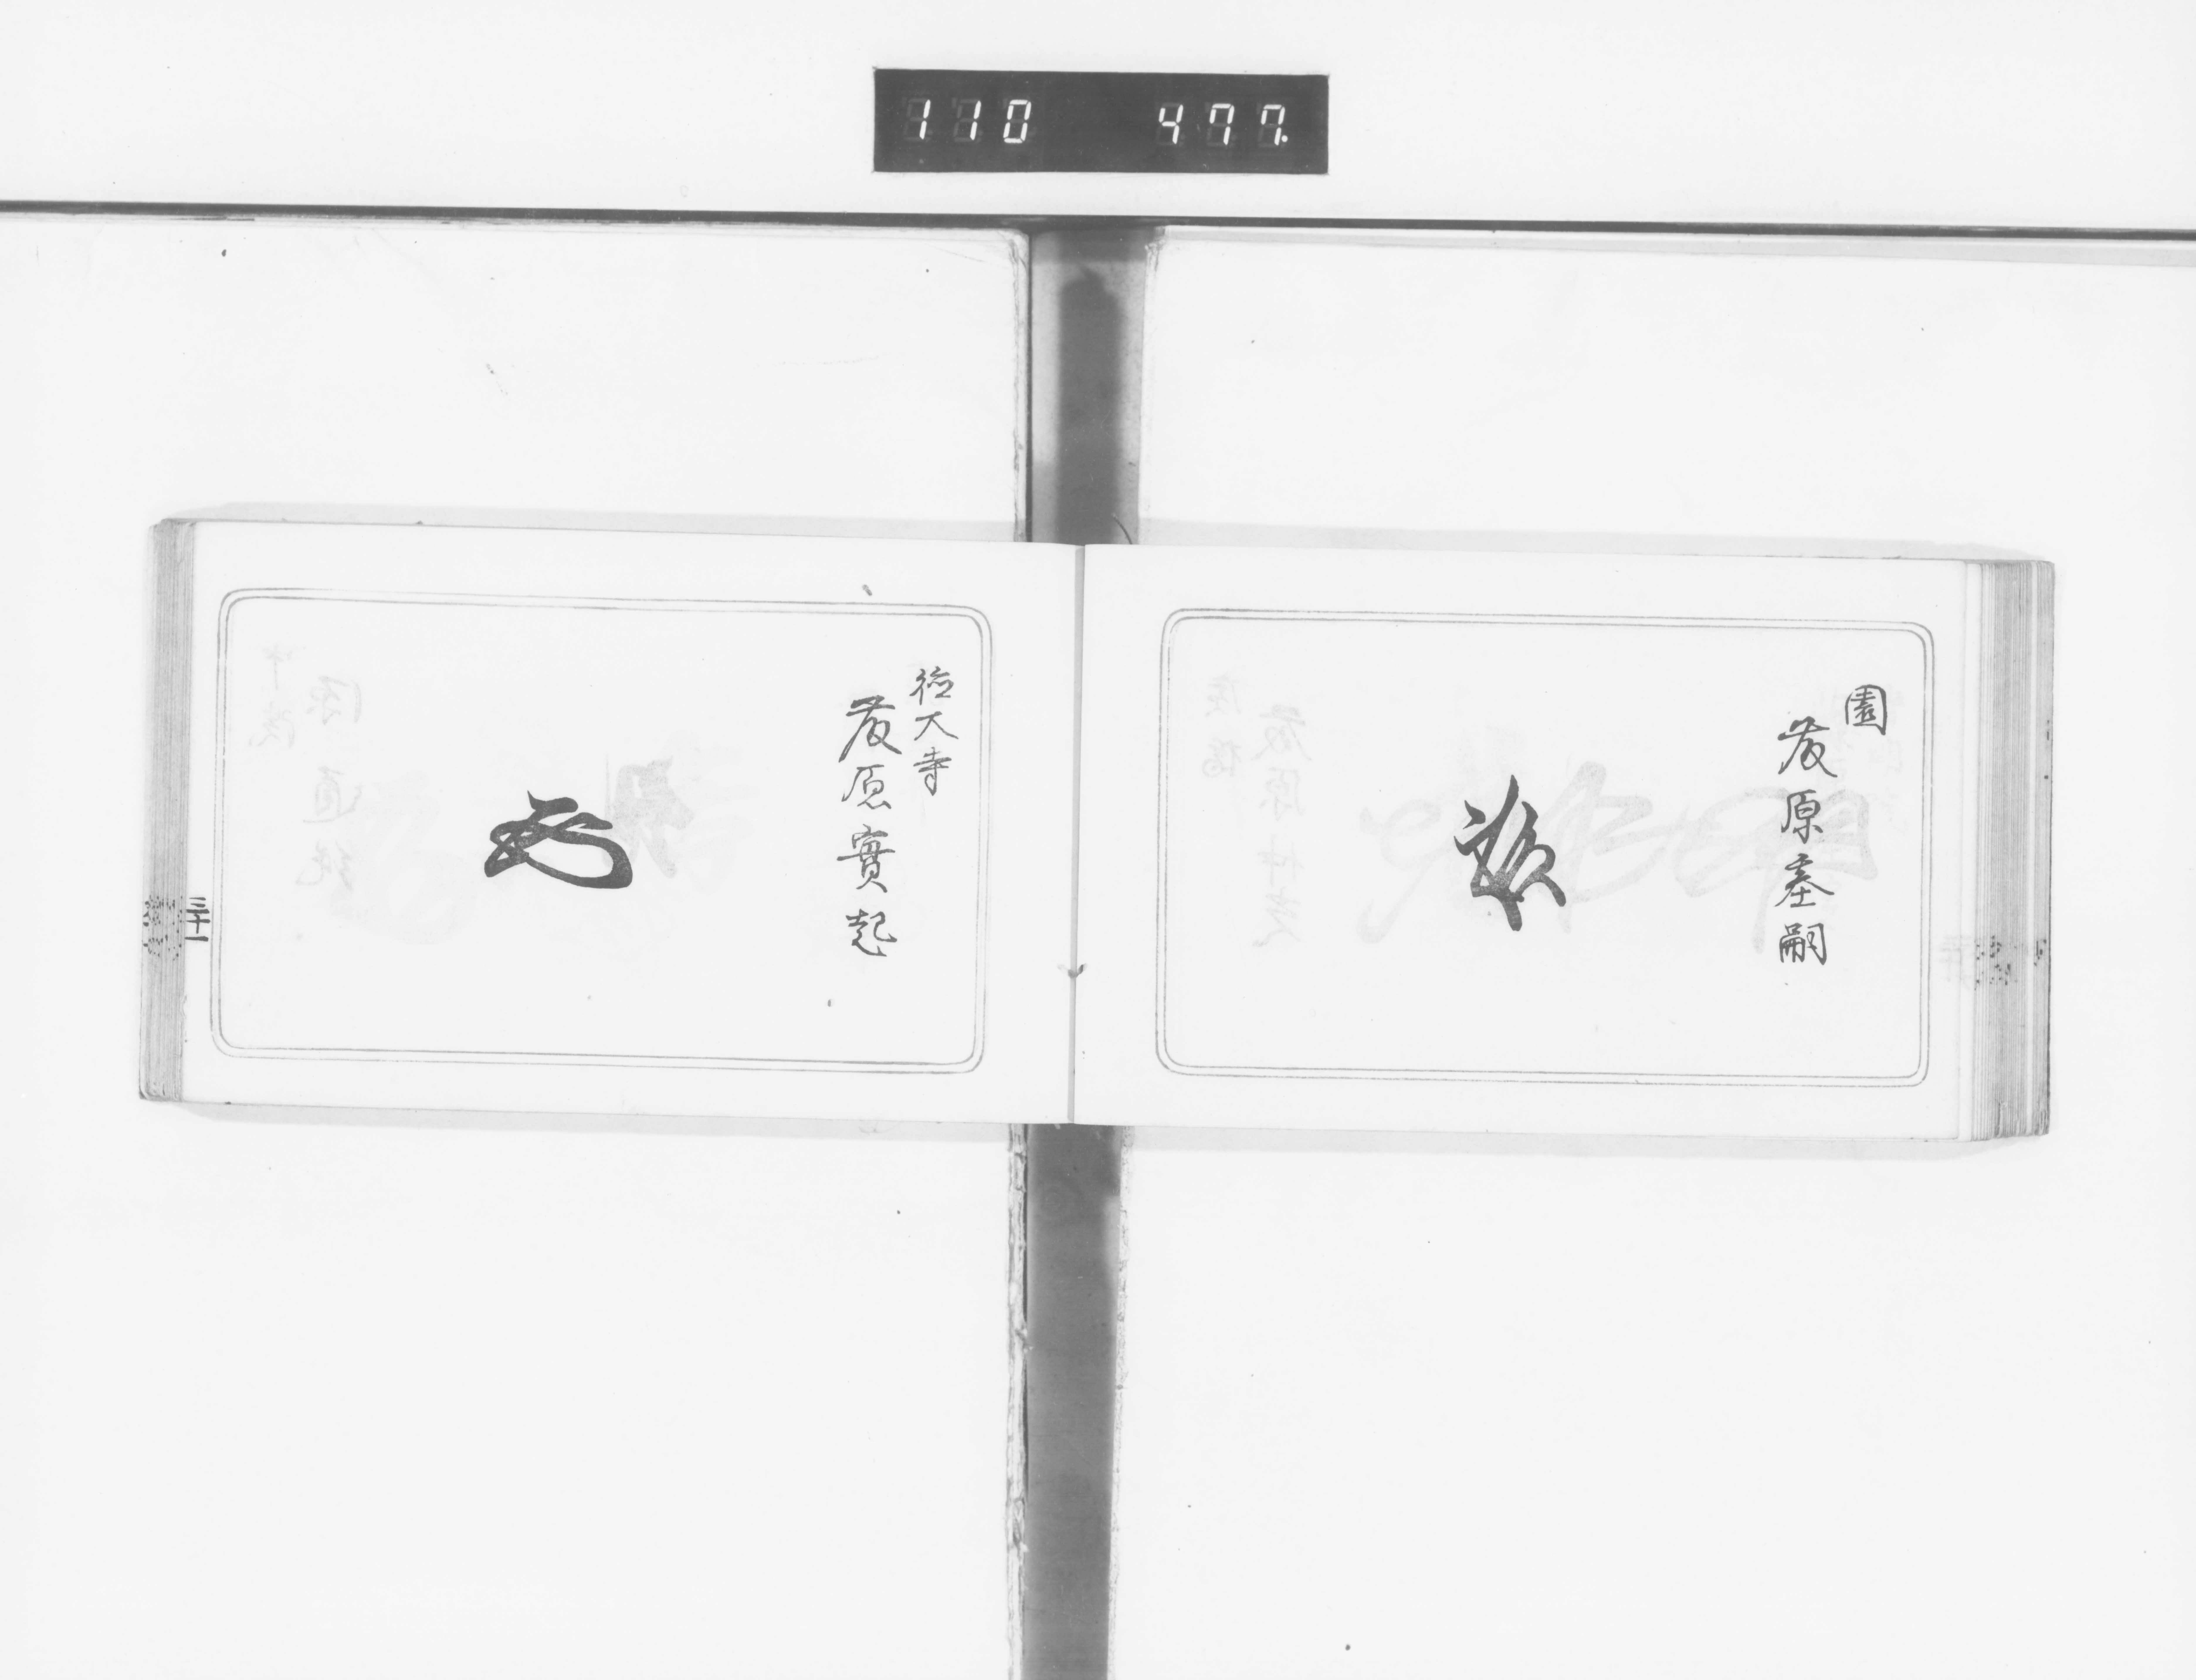 110 477
園
藤原基嗣
徳大寺
藤原實起
三十一